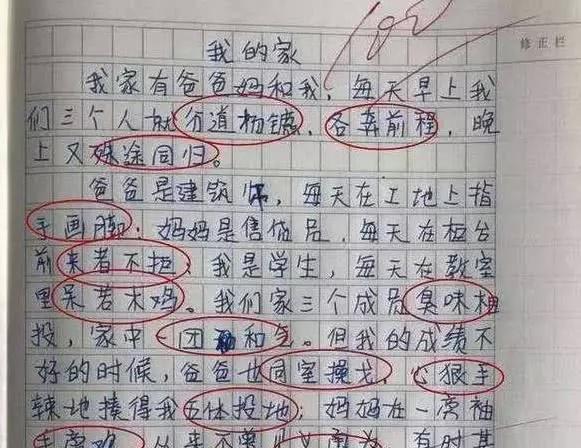 修正栏
100
我的家
我家有爸爸妈和我，每天早上我
们三个人就分道杨镳，各奔前程，晚
上又殊途同归。
爸爸是建筑师，每天在工地上指
手画脚；妈妈是售货员，每天在柜台
前来者不拒；我是学生，每天在教室
里呆若木鸡。我们家三个成员臭味相
投，家中一团和气。但我的成绩不
好的时候，爸爸也同室操戈，心狠手
辣地揍得我五体投地；妈妈在一旁袖
手旁观，从来不